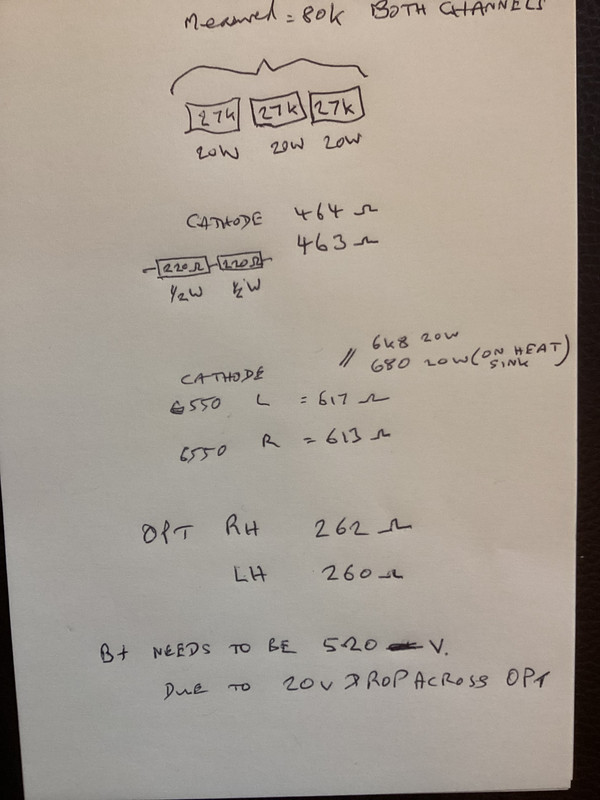 Measured = 80k BOTH CHANNELS
27k 27k 27k
20W 20W 20W
CATHODE 464 Ω
463 Ω
220Ω 220Ω
1/2W 1/2W
// 6k8 20W
680 20W (ON HEAT SINK)
CATHODE
6550 L = 617 Ω
6550 R = 613 Ω
OPT RH 262 Ω
LH 260 Ω
B+ NEEDS TO BE 520 V.
DUE TO 20V DROP ACROSS OPT